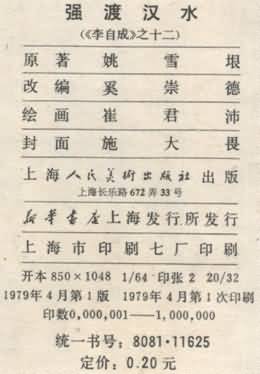 强渡汉水
(《李自成》之十二)
原著姚雪垠
改编奚崇德
绘画崔君沛
封面施大畏
上海人民美术出版社出版
上海长乐路672弄33号
新华书店上海发行所发行
上海市印刷七厂印刷
开本850×1048 1/64 印张2 20/32
1979年4月第1版 1979年4月第1次印刷
印数0,000,001——1,000,000
统一书号：8081·11625
定价：0.20元